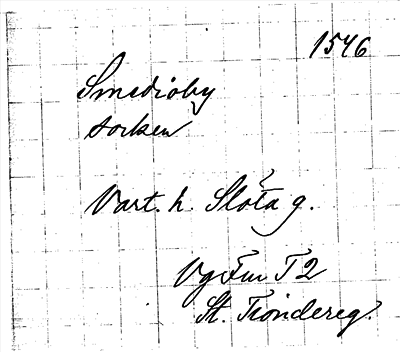 1546
Smedioby
socken
Vart. h. Slota g.
Vg Fm T 2
St. Tiondereg.